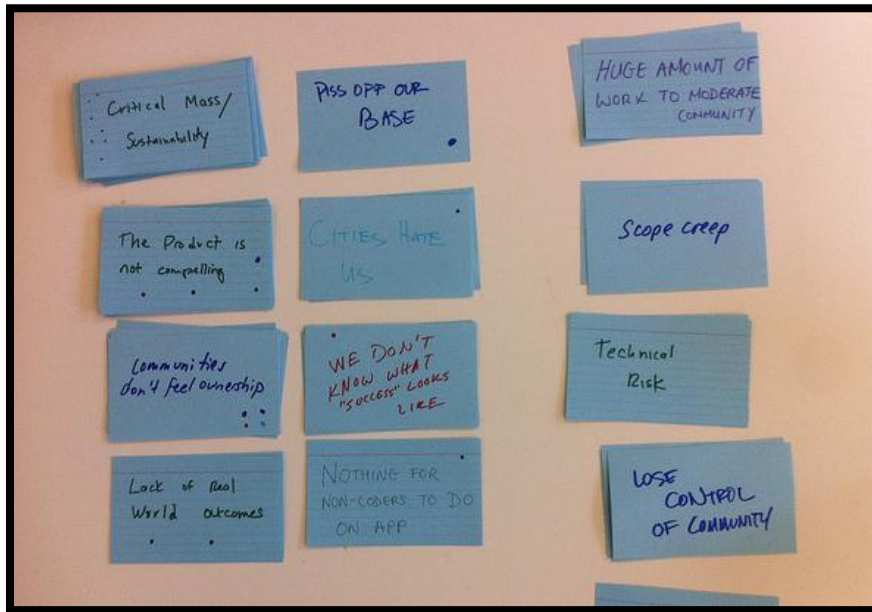 Critical Mass/
Sustainability
The Product is
not compelling
Communities
don't feel ownership
Lack of Real
World outcomes
PISS OFF OUR
BASE
CITIES HATE
US
WE DON'T
KNOW WHAT
"SUCCESS" LOOKS
LIKE
NOTHING FOR
NON-CODERS TO DO
ON APP
HUGE AMOUNT OF
WORK TO MODERATE
COMMUNITY
Scope creep
Technical
Risk
LOSE
CONTROL
OF COMMUNITY